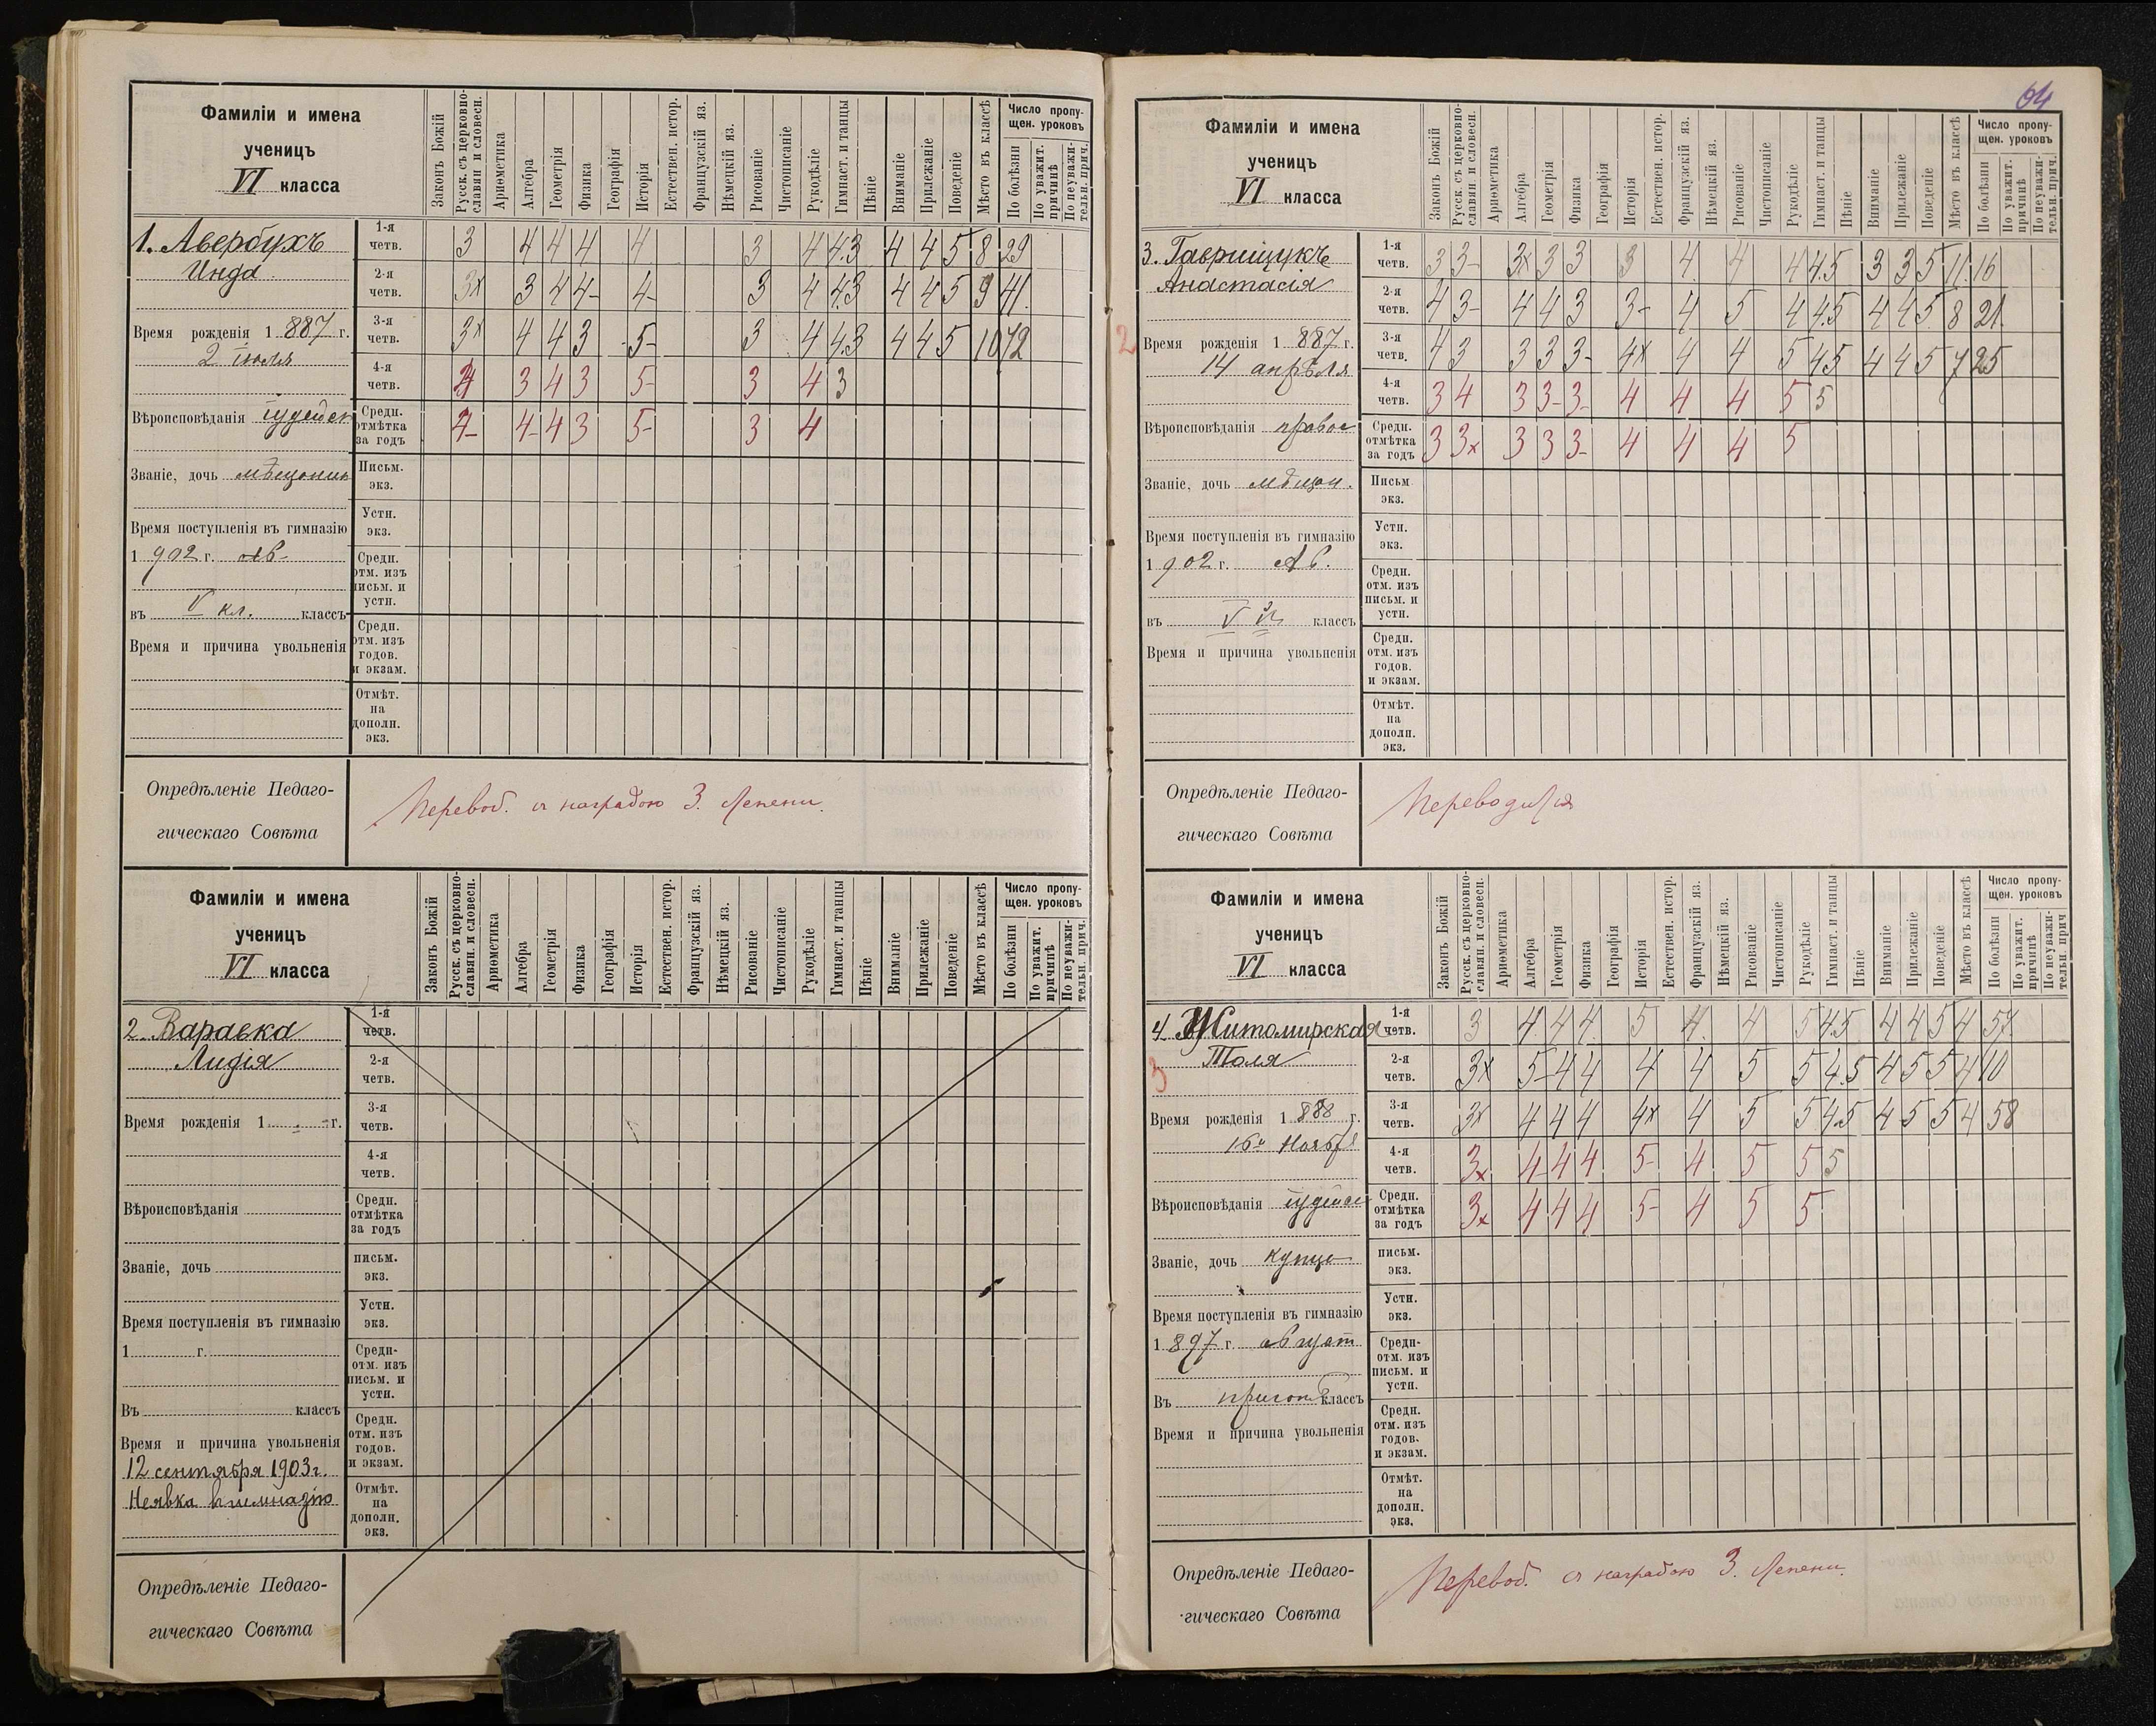 64
Фамиліи и имена
ученицъ
VI класса
Законъ Божій
Русск. съ церковно-
славян. и словесн.
Ариѳметика
Алгебра
Геометрія
Физика
Географія
Исторія
Естествен. истор.
Французскій яз.
Нѣмецкій яз.
Рисованіе
Чистописаніе
Рукодѣліе
Гимнаст. и танцы
Пѣніе
Вниманіе
Прилежаніе
Поведеніе
Мѣсто въ классѣ
Число пропу-
щен. уроковъ
По болѣзни
По уважит.
причинѣ
По неуважи-
тельн. прич.
1. Авербухъ
Инда
Время рожденія 1 887 г.
2 іюля
Вѣроисповѣданія іудейск
Званіе, дочь мѣщанин
Время поступленія въ гимназію
1 902 г. Ав-
въ V кл. классъ
Время и причина увольненія
1-я четв. 3 4 4 4 4 3 4 4 3 4 4 5 8 29
2-я четв. 3x 3 4 4- 4- 3 4 4 3 4 4 5 9 41
3-я четв. 3x 4 4 3 5- 3 4 4 3 4 4 5 10 72
4-я четв. 4 3 4 3 5- 3 4 3
Средн. отмѣтка за годъ 4- 4- 4 3 5- 3 4
Письм. экз.
Устн. экз.
Средн. отм. изъ письм. и устн.
Средн. отм. изъ годов. и экзам.
Отмѣт. на дополн. экз.
Опредѣленіе Педаго-
гическаго Совѣта
Перевод. съ наградою 3. степени.
Фамиліи и имена
ученицъ
VI класса
Законъ Божій
Русск. съ церковно-
славян. и словесн.
Ариѳметика
Алгебра
Геометрія
Физика
Географія
Исторія
Естествен. истор.
Французскій яз.
Нѣмецкій яз.
Рисованіе
Чистописаніе
Рукодѣліе
Гимнаст. и танцы
Пѣніе
Вниманіе
Прилежаніе
Поведеніе
Мѣсто въ классѣ
Число пропу-
щен. уроковъ
По болѣзни
По уважит.
причинѣ
По неуважи-
тельн. прич.
2. Варавка
Лидія
Время рожденія 1 г.
Вѣроисповѣданія
Званіе, дочь
Время поступленія въ гимназію
1 г.
Въ классъ
Время и причина увольненія
12 сентября 1903 г.
Неявка в гимназію
1-я четв.
2-я четв.
3-я четв.
4-я четв.
Средн. отмѣтка за годъ
письм. экз.
Устн. экз.
Средн- отм. изъ письм. и устн.
Средн. отм. изъ годов. и экзам.
Отмѣт. на дополн. экз.
Опредѣленіе Педаго-
гическаго Совѣта
Фамиліи и имена
ученицъ
VI класса
Законъ Божій
Русск. съ церковно-
славян. и словесн.
Ариѳметика
Алгебра
Геометрія
Физика
Географія
Исторія
Естествен. истор.
Французскій яз.
Нѣмецкій яз.
Рисованіе
Чистописаніе
Рукодѣліе
Гимнаст. и танцы
Пѣніе
Вниманіе
Прилежаніе
Поведеніе
Мѣсто въ классѣ
Число пропу-
щен. уроковъ
По болѣзни
По уважит.
причинѣ
По неуважи-
тельн. прич.
3. Гаврищукъ
Анастасія
2
Время рожденія 1 887 г.
14 апрѣля
Вѣроисповѣданія правос
Званіе, дочь мѣщан.
Время поступленія въ гимназію
1 902 г. Ав.
въ V й классъ
Время и причина увольненія
1-я четв. 3 3- 3x 3 3 3 4 4 4 4.5 3 3 5 11 16
2-я четв. 4 3- 4 4 3 3- 4 5 4 4.5 4 4 5 8 21
3-я четв. 4 3 3 3 3- 4x 4 4 5 4.5 4 4 5 7 25
4-я четв. 3 4 3 3- 3- 4 4 4 5 5
Средн. отмѣтка за годъ 3 3x 3 3 3- 4 4 4 5
Письм экз.
Устн. экз.
Средн. отм. изъ письм. и устн.
Средн. отм. изъ годов. и экзам.
Отмѣт. на дополн. экз.
Опредѣленіе Педаго-
гическаго Совѣта
Переводится
Фамиліи и имена
ученицъ
VI класса
Законъ Божій
Русск. съ церковно-
славян. и словесн.
Ариѳметика
Алгебра
Геометрія
Физика
Географія
Исторія
Естествен. истор.
Французскій яз.
Нѣмецкій яз.
Рисованіе
Чистописаніе
Рукодѣліе
Гимнаст. и танцы
Пѣніе
Вниманіе
Прилежаніе
Поведеніе
Мѣсто въ классѣ
Число пропу-
щен. уроковъ
По болѣзни
По уважит.
причинѣ
По неуважи-
тельн. прич
4. Житомирская
Толя
3
Время рожденія 1 888 г.
16 Ноября
Вѣроисповѣданія іудейс
Званіе, дочь купце
Время поступленія въ гимназію
1 897 г. август
Въ пригот классъ
Время и причина увольненія
1-я четв. 3 4 4 4 5 4 4 5 4.5 4 4 5 4 57
2-я четв. 3x 5- 4 4 4 4 5 5 4.5 4 5 5 4 10
3-я четв. 3x 4 4 4 4x 4 5 5 4.5 4 5 5 4 58
4-я четв. 3x 4 4 4 5- 4 5 5 5
Средн. отмѣтка за годъ 3x 4 4 4 5- 4 5 5
письм. экз.
Устн. экз.
Средн- отм. изъ письм. и устн.
Средн. отм. изъ годов. и экзам.
Отмѣт. на дополн. экз.
Опредѣленіе Педаго-
гическаго Совѣта
Перевод. съ наградою 3. степени.